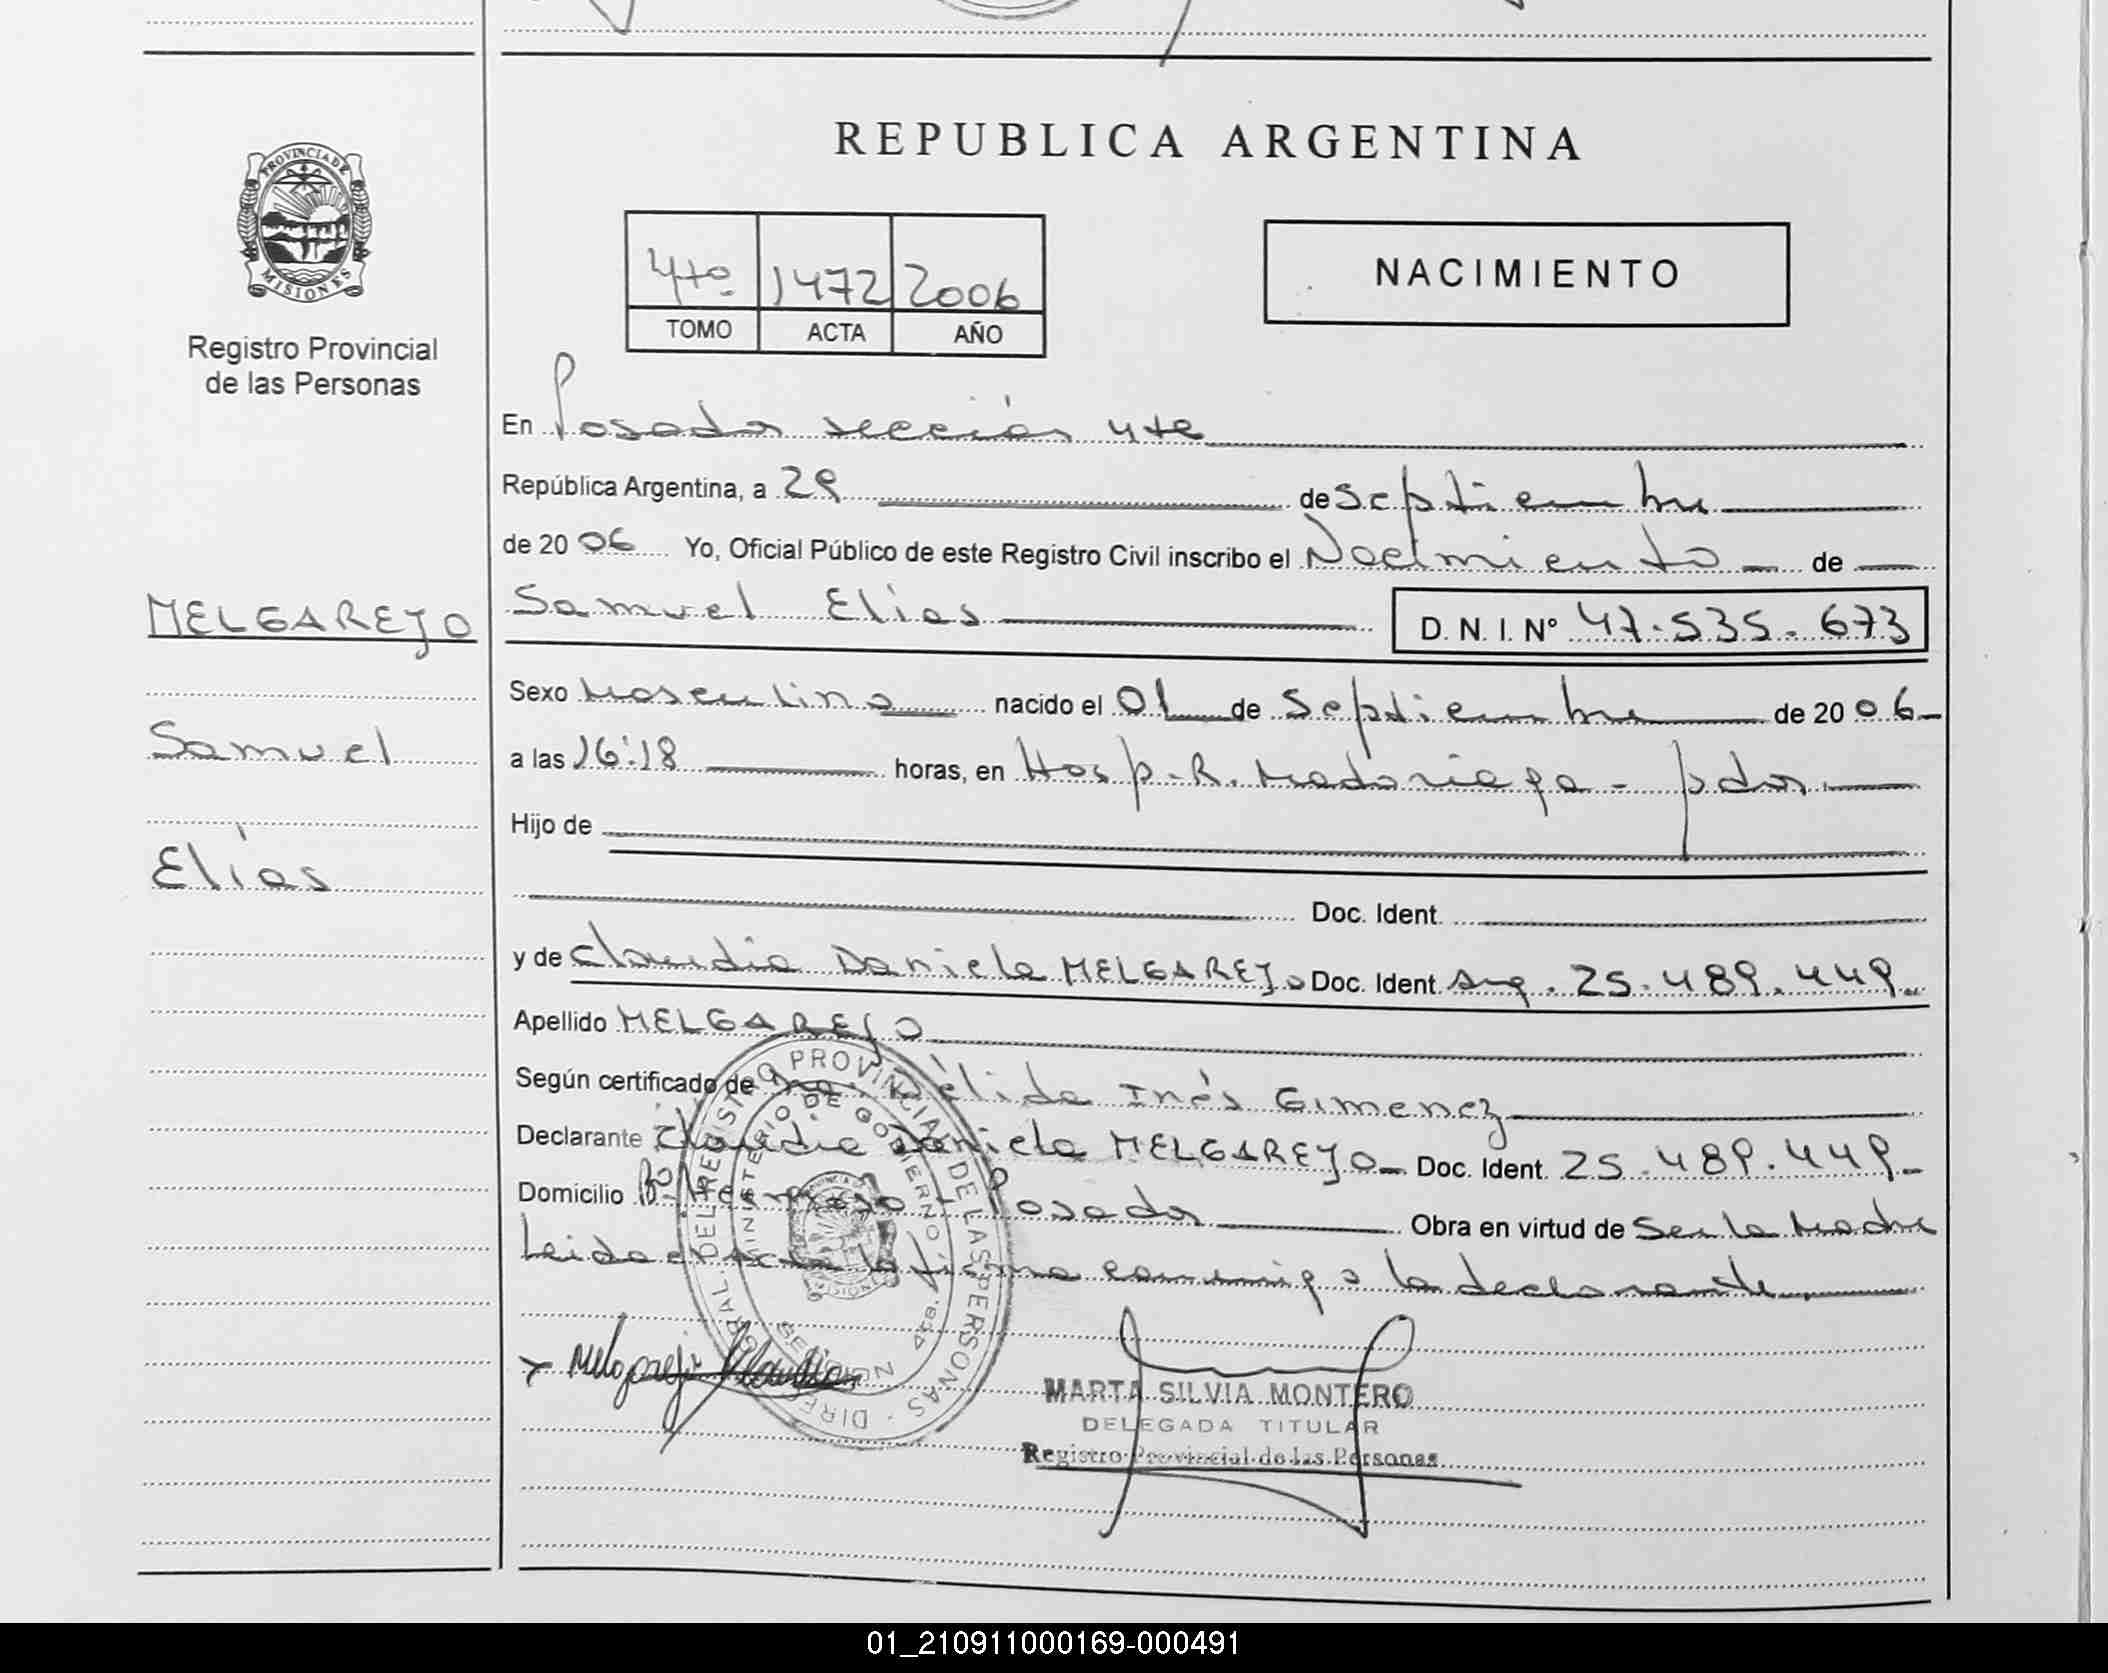 REPUBLICA ARGENTINA
PROVINCIA DE
MISIONES
Registro Provincial
de las Personas
4to 1472 2006
TOMO ACTA AÑO
NACIMIENTO
En Posadas sección 4ta
República Argentina, a 29 de Septiembre
de 2006 Yo, Oficial Público de este Registro Civil inscribo el Nacimiento de
MELGAREJO
Samuel
Elías
Samuel Elías D. N. I. Nº 47.535.673
Sexo Masculino nacido el 01 de Septiembre de 2006
a las 16:18 horas, en Hosp. R. Madariaga - pdas.
Hijo de
Doc. Ident.
y de Claudia Daniela MELGAREJO Doc. Ident. Arg. 25.489.449.
Apellido MELGAREJO
Según certificado de Nélida Inés Gimenez
Declarante Claudia Daniela MELGAREJO Doc. Ident. 25.489.449.
Domicilio Bº Posadas Obra en virtud de Ser la Madre
Leida el acta la firma conmigo la declarante.
REGISTRO PROVINCIAL DE LAS PERSONAS
MINISTERIO DE GOBIERNO
SECCION 4ta.
Melgarejo Claudia
MARTA SILVIA MONTERO
DELEGADA TITULAR
Registro Provincial de las Personas
01_210911000169-000491